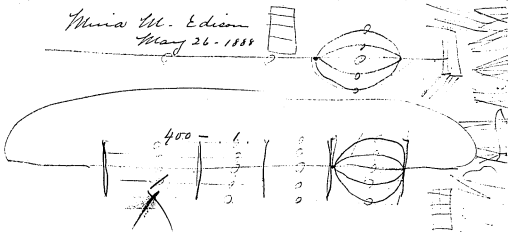 Mina M. Edison
May 26-1888
400 - . 1. .